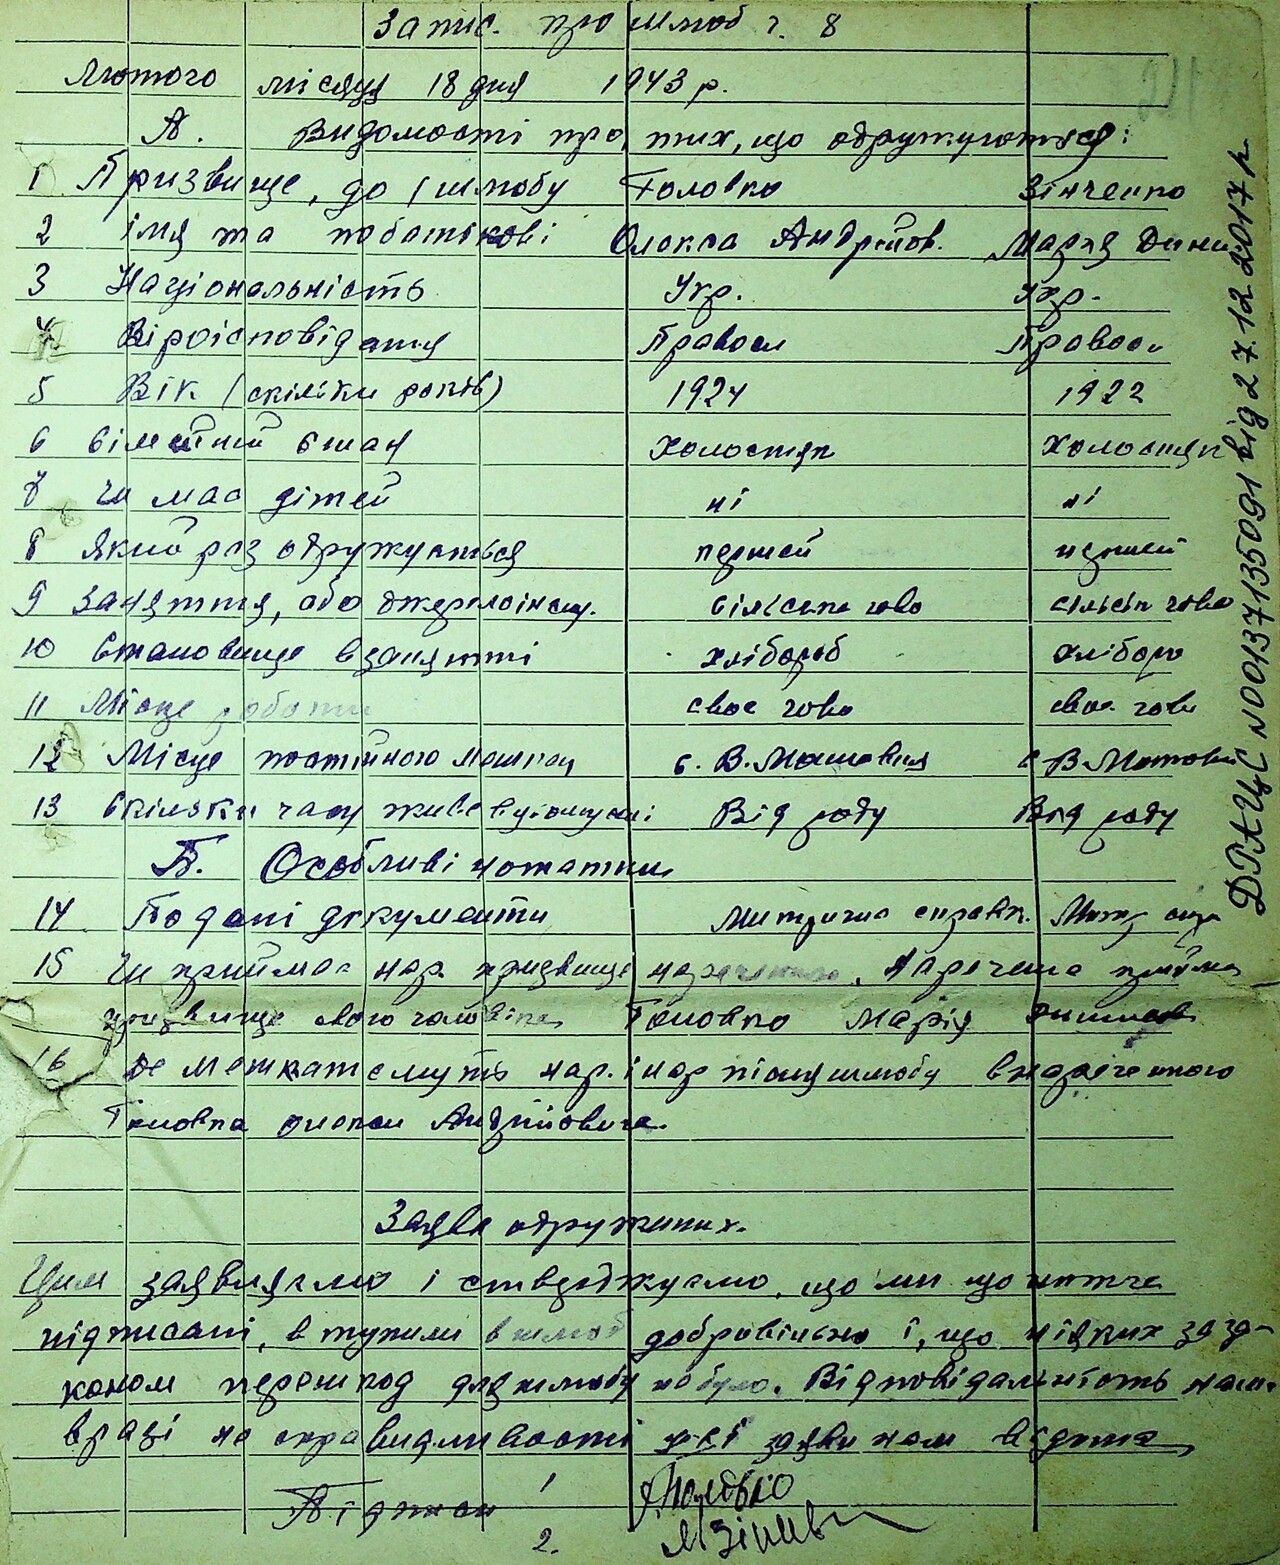 Запис. про шлюб ч. 8
Лютого місяця 18 дня 1943 р.
А. Видомості про тих, що одружуються:
1 Призвище, до шлюбу Головко Зінченко
2 імя та побатькові Олекса Андрійов. Марія Дини
3 Національність Укр. Укр.
4 Віроісповідання Правосл Правосл
5 Вік (скільки років) 1924 1922
6 Сімейний стан холостяк холостяк
7 чи має дітей ні ні
8 який раз одружується першей першей
9 заняття, або джерелоіснув. сільське гово сільськ гово
10 Становище взанятті хлібороб хлібор
11 Місце роботи своє гово своє гов
12 Місце постійного мешкан с. В. с В
13 Скільки часу живе в Від роду Від роду
Б. Особливі нотатки
14 Подані документи Митрична справк. Митр
15 Чи приймає нар. призвище нареченого. Наречена прийма
призвище свого чоловіка Головко Марія
16 Де мешкатемуть нар. і нар після шлюбу в нареченного
Головка Андрійовича.
Заява одружених.
Цим заявляємо і стверджуемо, що ми що нижче
підписані, вступили в шлюб добровільно і, що ніяких за за-
коном перешкод для шлюбу не було. Відповідальність на
вразі не справидливості цієї заяви нам відома
Підписи 1
2.
ДРАЦС N00137135091 від 27.12.2017 р